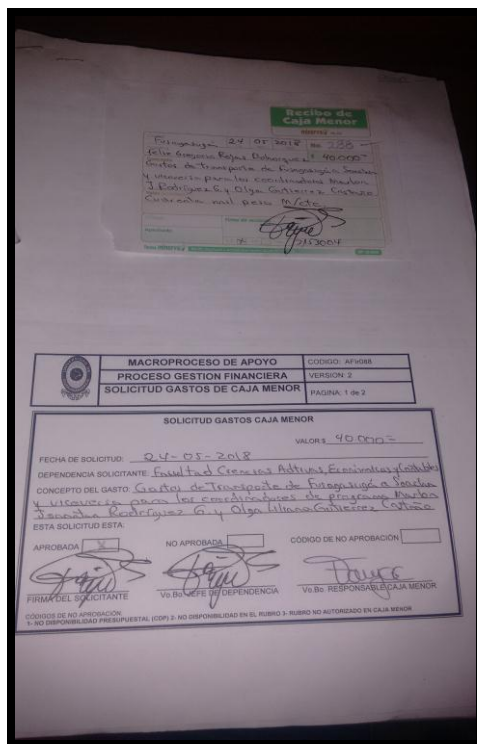 Recibo de
Caja Menor
Fusagasugá 24 05 2018 No.
Felix Gregorio Rojas Bohorquez $ 40.000=
Gastos de transporte de Fusagasugá a Soacha
y viceversa para los coordinadores Marlon
J. Rodriguez G y Olga Gutierrez Castaño
Cuarenta mil peso M/cte
MACROPROCESO DE APOYO
CODIGO: AFIr088
PROCESO GESTION FINANCIERA
VERSION: 2
SOLICITUD GASTOS DE CAJA MENOR
PAGINA: 1 de 2
SOLICITUD GASTOS CAJA MENOR
VALOR $ 40.000=
FECHA DE SOLICITUD: 24-05-2018
DEPENDENCIA SOLICITANTE: Facultad Ciencias Adtivas, Económicas y Contables
CONCEPTO DEL GASTO: Gastos de Transporte de Fusagasugá a Soacha
y viceversa para los coordinadores de programa Marlon
Rodríguez G. y Olga Liliana Gutierrez Castaño
ESTA SOLICITUD ESTA:
APROBADA X NO APROBADA CÓDIGO DE NO APROBACIÓN
FIRMA DEL SOLICITANTE Vo.Bo. JEFE DE DEPENDENCIA Vo.Bo. RESPONSABLE CAJA MENOR
CÓDIGOS DE NO APROBACIÓN:
1- NO DISPONIBILIDAD PRESUPUESTAL (CDP) 2- NO DISPONIBILIDAD EN EL RUBRO 3- RUBRO NO AUTORIZADO EN CAJA MENOR